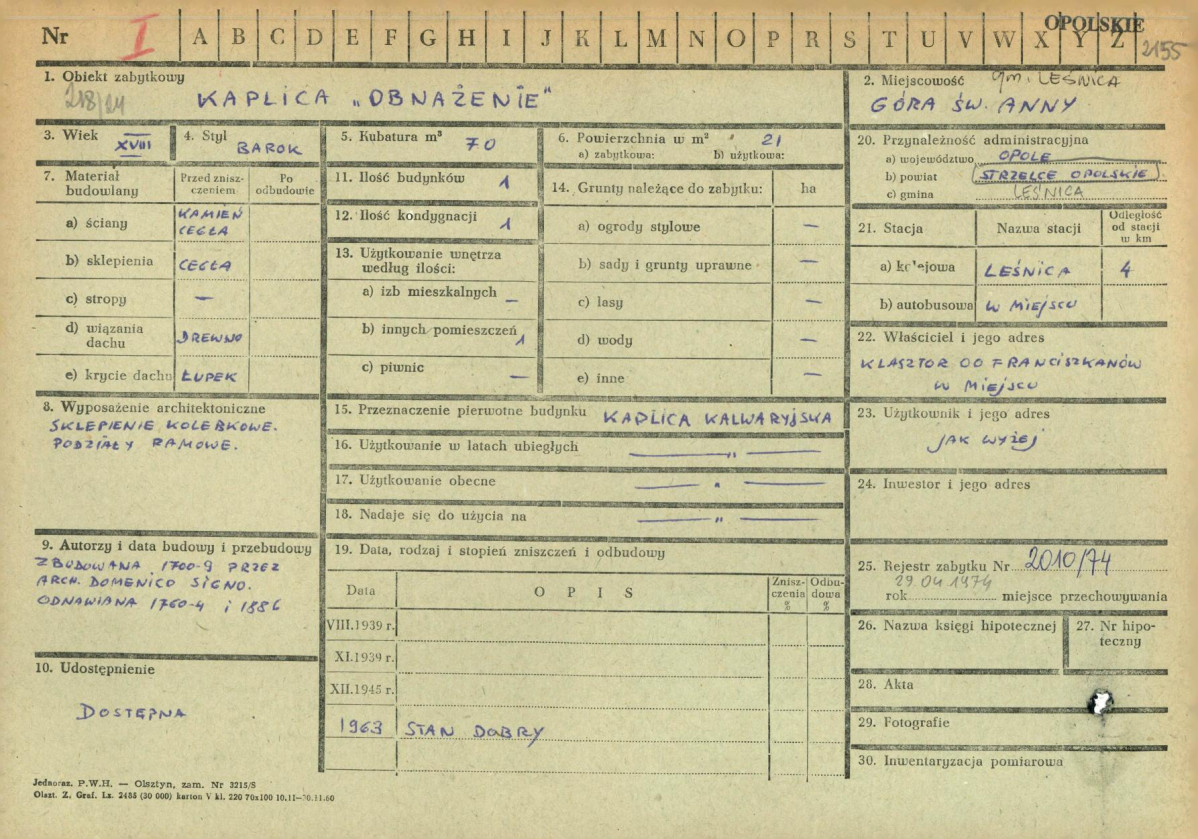 Nr I A B C D E F G H I J K L M N O P R S T U V W X Y Z
OPOLSKIE
2155
1. Obiekt zabytkowy
218/24
KAPLICA „OBNAŻENIE"
2. Miejscowość gm. LEŚNICA
GÓRA ŚW. ANNY
3. Wiek XVIII
4. Styl BAROK
5. Kubatura m³ 70
6. Powierzchnia w m² 21
a) zabytkowa: b) użytkowa:
20. Przynależność administracyjna
a) województwo OPOLE
b) powiat STRZELCE OPOLSKIE
c) gmina LEŚNICA
7. Materiał budowlany
Przed zniszczeniem
Po odbudowie
a) ściany KAMIEŃ CEGŁA
b) sklepienia CEGŁA
c) stropy —
d) wiązania dachu DREWNO
e) krycie dachu ŁUPEK
11. Ilość budynków 1
12. Ilość kondygnacji 1
13. Użytkowanie wnętrza według ilości:
a) izb mieszkalnych —
b) innych pomieszczeń 1
c) piwnic —
14. Grunty należące do zabytku: ha
a) ogrody stylowe —
b) sady i grunty uprawne —
c) lasy —
d) wody —
e) inne —
21. Stacja Nazwa stacji Odległość od stacji w km
a) kolejowa LEŚNICA 4
b) autobusowa W MIEJSCU
22. Właściciel i jego adres
KLASZTOR OO FRANCISZKANÓW
W MIEJSCU
8. Wyposażenie architektoniczne
SKLEPIENIE KOLEBKOWE.
PODZIAŁY RAMOWE.
15. Przeznaczenie pierwotne budynku KAPLICA KALWARYJSKA
16. Użytkowanie w latach ubiegłych — „ —
17. Użytkowanie obecne — „ —
18. Nadaje się do użycia na — „ —
23. Użytkownik i jego adres
JAK WYŻEJ
24. Inwestor i jego adres
9. Autorzy i data budowy i przebudowy
ZBUDOWANA 1700-9 PRZEZ
ARCH. DOMENICO SIGNO.
ODNAWIANA 1760-4 i 1886
10. Udostępnienie
DOSTĘPNA
19. Data, rodzaj i stopień zniszczeń i odbudowy
Data OPIS Zniszczenia % Odbudowa %
VIII.1939 r.
XI.1939 r.
XII.1945 r.
1963 STAN DOBRY
25. Rejestr zabytku Nr 2010/74
29 04 1974
rok miejsce przechowywania
26. Nazwa księgi hipotecznej
27. Nr hipoteczny
28. Akta
29. Fotografie
30. Inwentaryzacja pomiarowa
Jednoraz. P.W.H. — Olsztyn, zam. Nr 3215/S
Olszt. Z. Graf. Lz. 2485 (30 000) karton V kl. 220 70x100 10.11—30.11.60